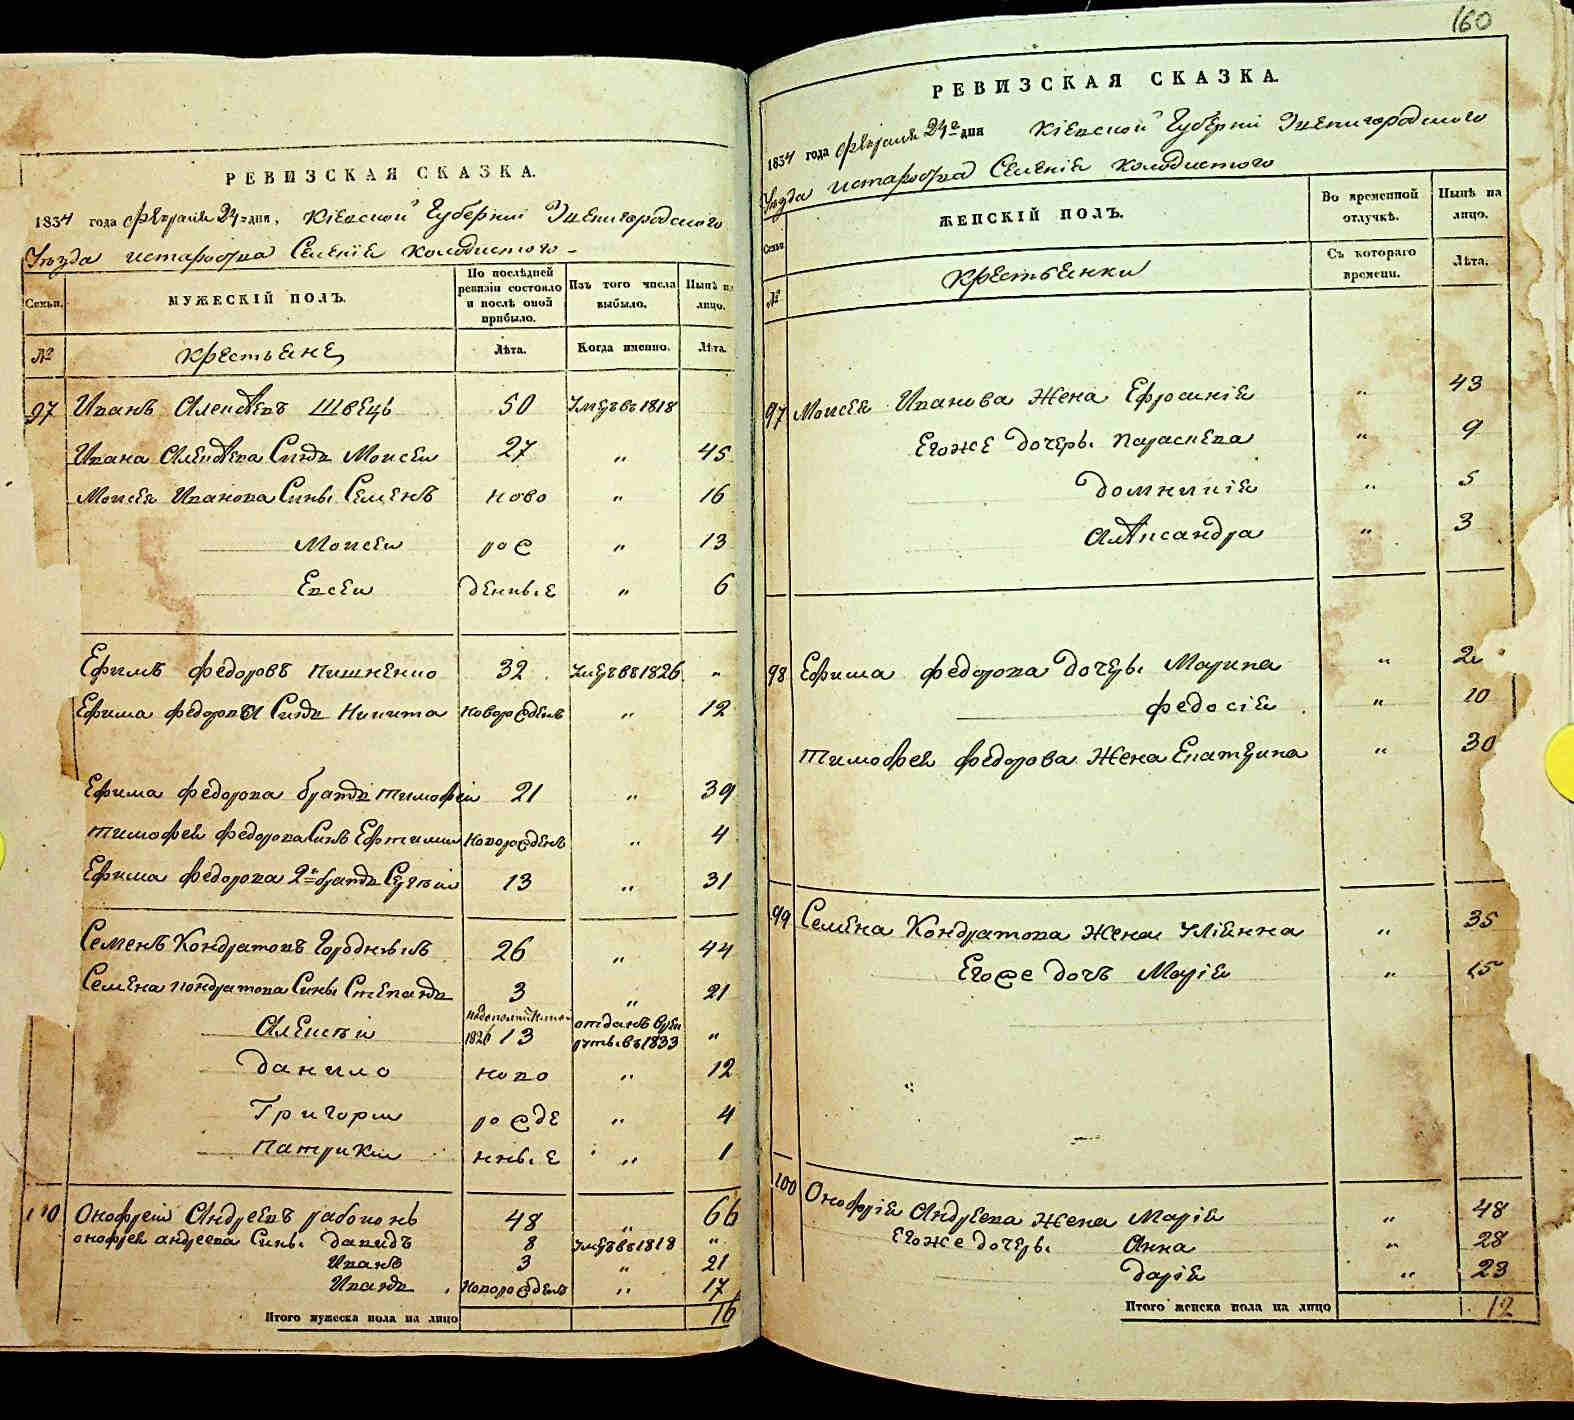 РЕВИЗСКАЯ СКАЗКА.
1834 года февраля 24 дня, Кіевской Губерніи Звенигородского
Уезда староства Селеніе Колодистого
Семьи.
МУЖЕСКІЙ ПОЛЪ.
По послѣдней ревизіи состояло и послѣ оной прибыло.
Изъ того числа выбыло.
Нынѣ на лицо.
№
Крестьяне
Лѣта.
Когда именно.
Лѣта.
97 Иванъ Алексѣевъ Швецъ 50 Умеръ въ 1818
Ивана Алексѣева Синъ Моисей 27 " 45
Моисея Иванова Сины Семенъ ново " 16
Моисей рож " 13
Евсей денные " 6
Ефимъ Федоровъ 32 Умеръ въ 1826 "
Ефима Федорова Синъ Никита новорожденъ " 12
Ефима Федорова братъ Тимофей 21 " 39
Тимофея Федорова Синъ Ефтимий новорожденъ " 4
Ефима Федорова 2й братъ Сергѣй 13 " 31
Семенъ Кондратовъ 26 " 44
Семена Кондратова Сины Степанъ 3 " 21
Алексѣй 1826 13 отданъ въ рекруты въ 1833 "
Данило ново " 12
Григорий рожде " 4
Патрикий нные " 1
100 Онофрей Андреевъ Рабоконь 48 " 66
Онофрея Андреева Сины Давидъ 8 Умеръ въ 1818 "
Иванъ 3 " 21
Иванъ новорожденъ " 17
Итого мужеска пола на лицо 16
160
РЕВИЗСКАЯ СКАЗКА.
1834 года февраля 24го дня Кіевской Губерніи Звенигородского
Уезда староства Селеніе Колодистого
Семьи
ЖЕНСКІЙ ПОЛЪ.
Во временной отлучкѣ.
Нынѣ на лицо.
№
Крестьянки
Съ котораго времени.
Лѣта.
97 Моисея Иванова Жена Ефросинія " 43
Егоже дочеры Параскева " 9
Домникія " 5
Алѣксандра " 3
98 Ефима Федорова дочеры Марина "
Федосія " 10
Тимофея Федорова Жена Екатерина " 30
99 Семена Кондратова Жена Уліянна " 35
Егоже дочъ Марія " 15
100 Онофрія Андреева Жена Марія " 48
Егоже дочеры Анна " 28
Дарія " 23
Итого женска пола на лицо 12